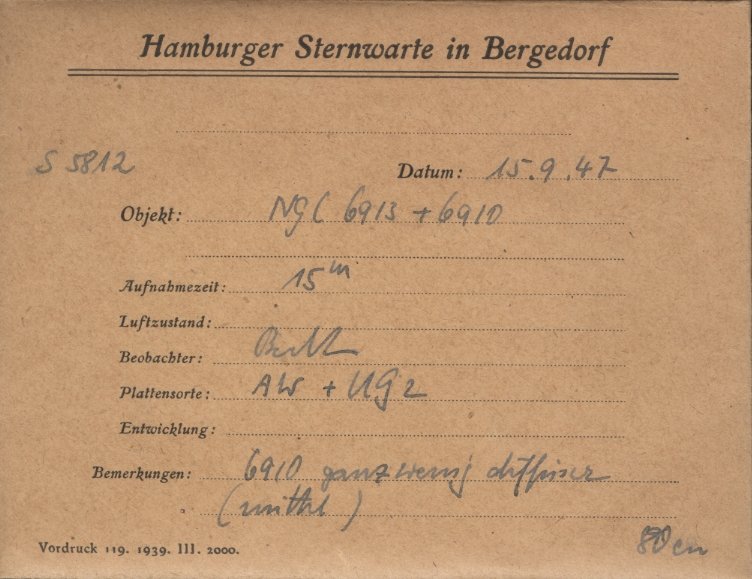 Hamburger Sternwarte in Bergedorf
S 5812
Datum: 15.9.47
Objekt: NGC 6913 + 6910
Aufnahmezeit: 15 m
Luftzustand:
Beobachter:
Plattensorte: AW + UG2
Entwicklung:
Bemerkungen: 6910 ganz wenig diffuser
(mittel)
Vordruck 119. 1939. III. 2000.
80 cm